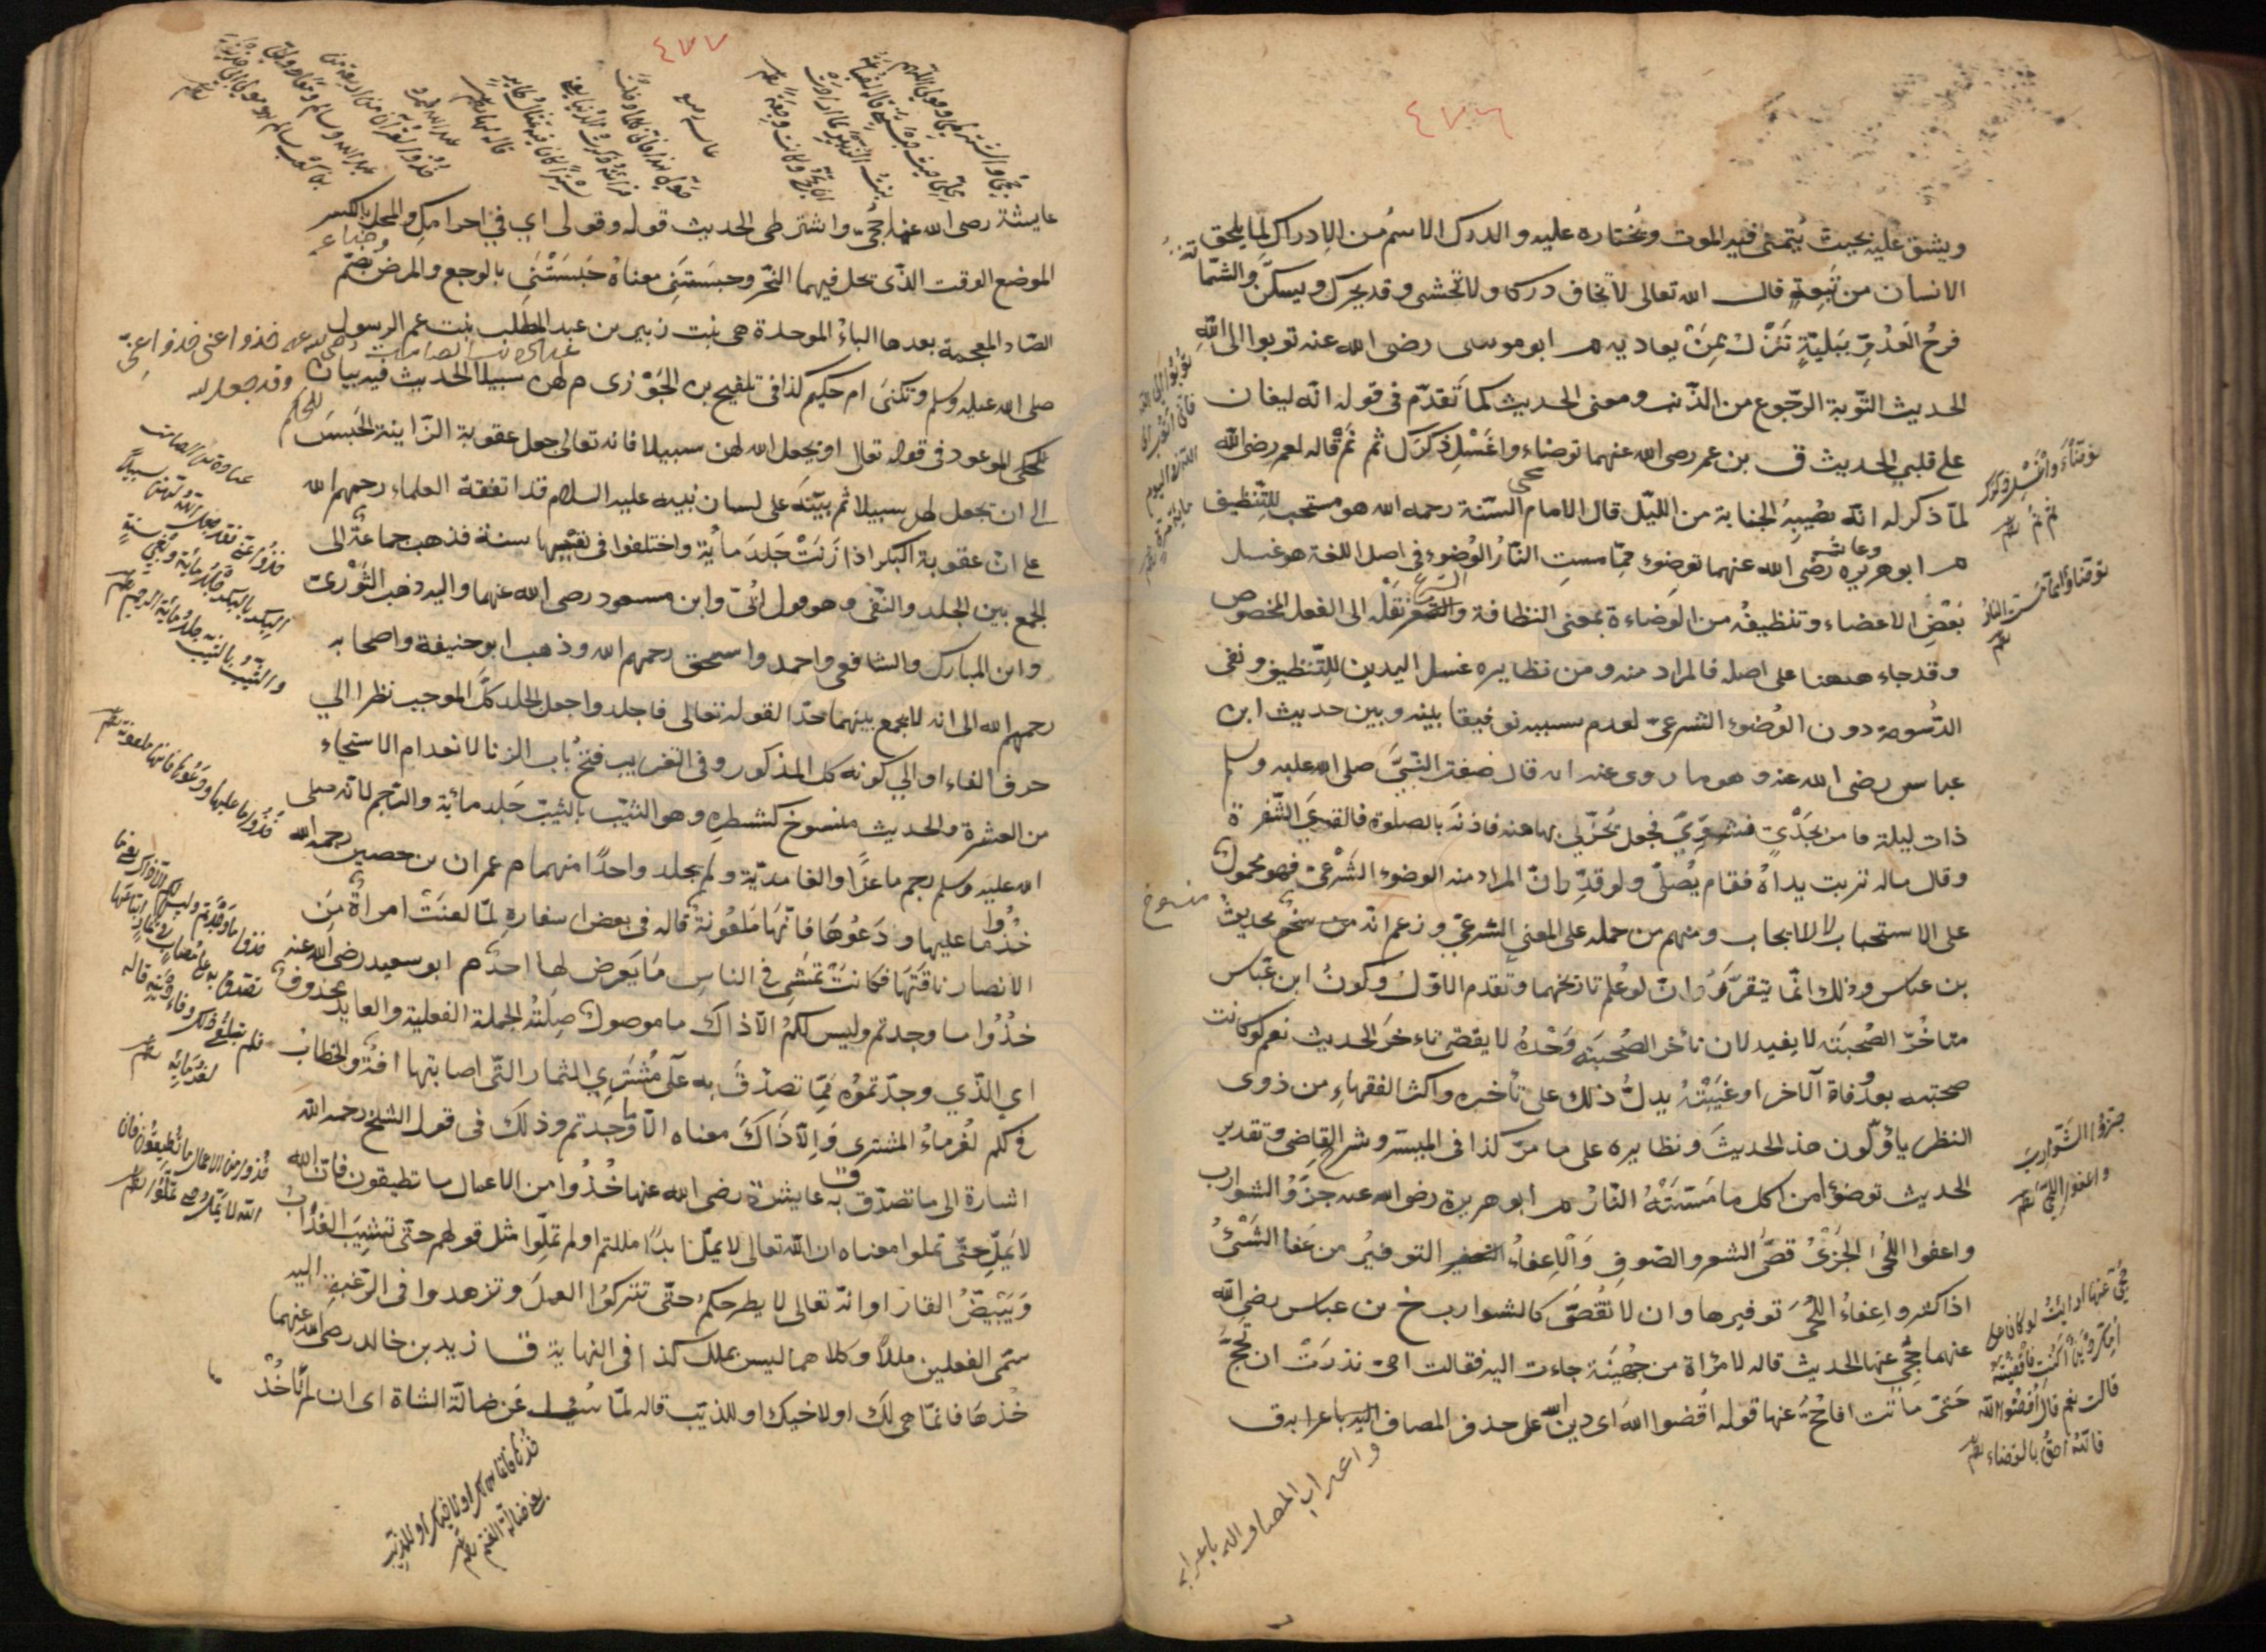 ٤٧٦
ويشق عليه بحيث يتمنى فيه الموت ويختاره عليه والدرك الاسم من الادراك لما يلحق
الانسان من تبعة قال الله تعالى لا تخاف دركا ولا تخشى وقد يحرك ويسكن والشماتة
فرح العدو ببلية تنزل بمن يعاديه م ابو موسى رضى الله عنه توبوا الى الله
الحديث التوبة الرجوع من الذنب ومعنى الحديث كما تقدم فى قوله انه ليغان
على قلبي الحديث ق بن عمر رضى الله عنهما توضاء واغسل ذكرك ثم نم قاله لعمر رضى الله
لما ذكر له انه تصيبه الجنابة من الليل قال الامام محى السنة رحمه الله هو مستحب للتنظيف
م ابو هريرة وعائشة رضى الله عنهما توضوء مما مست النار الوضوء فى اصل اللغة هو غسل
بعض الاعضاء وتنظيفه من الوضاءة بمعنى النظافة والشرع نقله الى الفعل المخصوص
وقد جاء ههنا على اصله فالمراد منه ومن نظايره غسل اليدين للتنظيف ونفى
الدسومة دون الوضوء الشرعى لعدم سببه توفيقا بينه وبين حديث ابن
عباس رضى الله عنه وهو ما روى عنه انه قال ضفت النبي صلى الله عليه وسلم
ذات ليلة فامر بجدي فشوي فجعل يحز لي بها منه فاذنه بالصلوة فالقى الشفرة
وقال ماله تربت يداه فقام يصلى ولو قدر ان المراد منه الوضوء الشرعى فهو محمول
على الاستحباب لا الايجاب ومنهم من حمله على المعنى الشرعي وزعم انه منسوخ بحديث
بن عباس وذلك انما يتقرر ان لو علم تاريخهما وتقدم الاول وكون ابن عباس
متاخر الصحبة لا يفيد لان تأخر الصحبة وحده لا يقتضى تاءخر الحديث نعم لو كانت
صحبته بعد وفاة الآخر او غيبته يدل ذلك على تأخره واكثر الفقهاء من ذوى
النظر يأولون هذ الحديث ونظايره على ما مر كذا فى الميسر وشرح القاضي وتقدير
الحديث توضوء من اكل ما مسته النار م ابو هريرة رضى الله عنه جزو الشوارب
واعفوا اللحى الجز قص الشعر والصوف والاعفاء التوفير من عفا الشئ
اذا كثر واعفاء اللحى توفيرها وان لا تقص كالشوارب خ بن عباس رضى الله
عنهما حجي عنها الحديث قاله لامرأة من جهينة جاءت اليه فقالت امى نذرت ان تحج
حتى ماتت افاحج عنها قوله اقضوا الله اى دين الله على حذف المضاف
واعراب المضاف اليه باعرابه
توبوا الى الله
فانى اتوب الى
الله فى اليوم
ماية مرة
توضأ واغسل ذكرك
ثم نم
توضاؤا مما مست النار
جزوا الشوارب
واعفوا اللحى
حجي عنها ارايت لو كان على
امك دين اكنت قاضيته
قالت نعم قال اقضوا الله
فانه احق بالقضاء
٤٧٧
عايشة رضى الله عنها حجي واشترطى الحديث قوله وقولى اي في احرامك والمحل بالكسر
الموضع الوقت الذى تحل فيهما النحر وحبستني معناه حبستنى بالوجع والمرض وضباعة بضم
الضاد المعجمة بعدها الباء الموحدة هى بنت زبير بن عبد المطلب بنت عم الرسول
صلى الله عليه وسلم وتكنى ام حكيم كذا فى تلقيح بن الجوزى م عبادة بن الصامت رضى الله عنه خذوا عنى خذوا عني وقد جعل الله لهن سبيلا الحديث فيه بيان للحكم
الموعود فى قوله تعالى او يجعل الله لهن سبيلا فانه تعالى جعل عقوبة الزانية الحبس
الى ان تجعل لهن سبيلا ثم بينه على لسان نبيه عليه السلام قد اتفقه العلماء رحمهم الله
على ان عقوبة البكر اذا زنت جلد مأية واختلفوا فى تغريبها سنة فذهب جماعة الى
الجمع بين الجلد والنفى وهو قول ابى وابن مسعود رضى الله عنهما واليه ذهب الثورى
وابن المبارك والشافعى واحمد واسحق رحمهم الله وذهب ابو حنيفة واصحابه
رحمهم الله الى انه لا يجمع بينهما حدا لقوله تعالى فاجلدوا جعل الجلد كل الموجب نظرا الي
حرف الفاء او الي كونه كل المذكور وفى التغريب فتح باب الزنا لانعدام الاستحياء
من العشرة والحديث منسوخ كشطره وهو الثيب بالثيب جلد مائية والرجم لانه صلى
الله عليه وسلم رجم ماعزا والغامدية ولم يجلد واحدا منهما م عمران بن حصين رحمه الله
خذوا ما عليها ودعوها فانها ملعونة قاله فى بعض اسفاره لما لعنت امراة من
الانصار ناقتها فكانت تمشى في الناس ما يعرض لها احد م ابو سعيد رضى الله عنه
خذوا ما وجدتم وليس لكم الا ذاك ما موصولة صلته الجملة الفعلية والعايد محذوف
اي الذي وجدتموه مما تصدق به على مشتري الثمار التى اصابتها افة والخطاب
فى لكم لغرماء المشترى والا ذاك معناه الا ما وجدتم وذلك فى قول الشيخ رحمه الله
اشارة الى ما تصدق به ق عايشة رضى الله عنها خذوا من الاعمال ما تطيقون فان الله
لا يمل حتى تملوا معناه ان الله تعالى لا يمل ابدا مللتم او لم تملوا مثل قولهم حتى تشيب الغراب
ويبيض القار او انه تعالى لا يطرحكم حتى تتركوا العمل وتزهدوا فى الرغبة اليه
سمى الفعلين مللا وكلاهما ليس بملل كذا فى النهاية ق زيد بن خالد رضى الله عنهما
خذها فانما هى لك او لاخيك او للذيب قاله لما سئل عن ضالة الشاة اى ان لم تأخذ
عبادة بن الصامت
خذوا عنى فقد جعل الله لهن سبيلا
البكر بالبكر جلد مائة ونفي سنة
والثيب بالثيب جلد مائة والرجم
خذوا ما عليها ودعوها فانها ملعونة
خذوا ما وجدتم وليس لكم الا ذاك
خذوا من الاعمال ما تطيقون فان
الله لا يمل حتى تملوا
خذها فانما هى لك او لاخيك او للذيب
يعنى ضالة الغنم